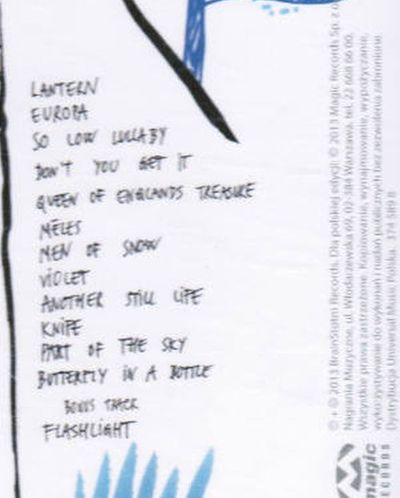 LANTERN
EUROPA
SO LOW LULLABY
DON'T YOU GET IT
QUEEN OF ENGLANDS TREASURE
MELES
MEN OF SNOW
VIOLET
ANOTHER STILL LIFE
KNIFE
PART OF THE SKY
BUTTERFLY IN A BOTTLE
BONUS TRACK
FLASHLIGHT
℗ + © 2013 BrainStorm Records. Dla polskiej edycji: © 2013 Magic Records Sp. z o.
Nagrania Muzyczne, ul. Włodarzewska 69, 02-384 Warszawa, tel. 22 668 66 00.
Wszystkie prawa zastrzeżone. Kopiowanie, wynajmowanie, wypożyczanie,
wykorzystywanie do wykonań i nadań publicznych bez zezwolenia zabronione.
Dystrybucja Universal Music Polska. 374 589 8
magic
RECORDS